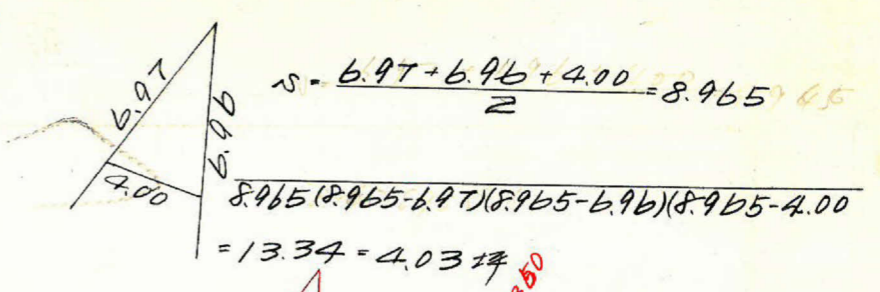 6.97
6.96
4.00
s = 6.97 + 6.96 + 4.00 / 2 = 8.965
8.965(8.965-6.97)(8.965-6.96)(8.965-4.00
= 13.34 = 4.03坪
50